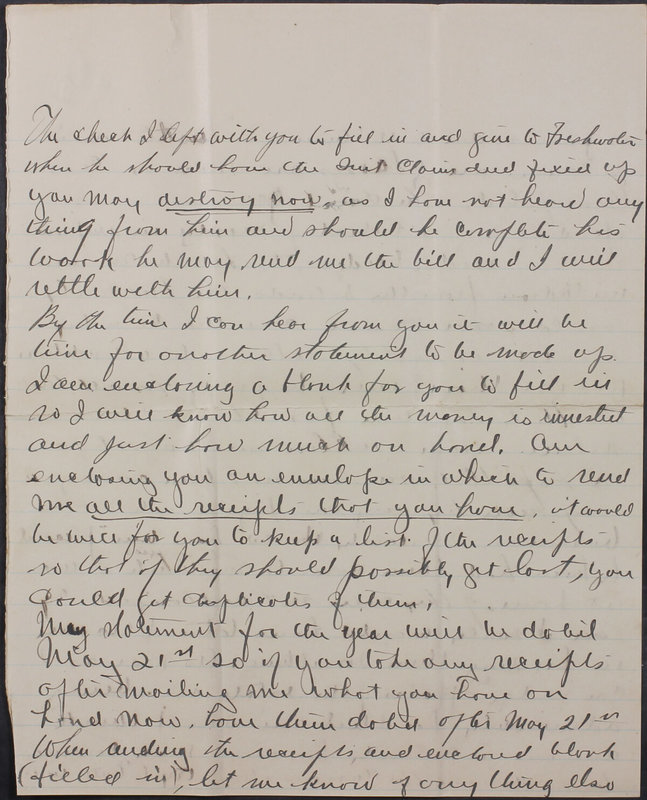 The check I left with you to fill in and give to Freshwater
when he should have the Quit Claim deed fixed up
you may destroy now, as I have not heard any
thing from him and should he complete his
work he may send me the bill and I will
settle with him.
By the time I can hear from you it will be
time for another statement to be made up.
I am enclosing a blank for you to fill in
so I will know how all the money is invested
and just how much on hand. Am
enclosing you an envelope in which to send
me all the receipts that you have, it would
be well for you to keep a list of the receipts
so that if they should possibly get lost, you
could get duplicates of them.
My statement for the year will be dated
May 21st so if you take any receipts
after mailing me what you have on
hand now, have them dated after May 21st
When sending the receipts and enclosed blank
(filled in), let me know if any thing else